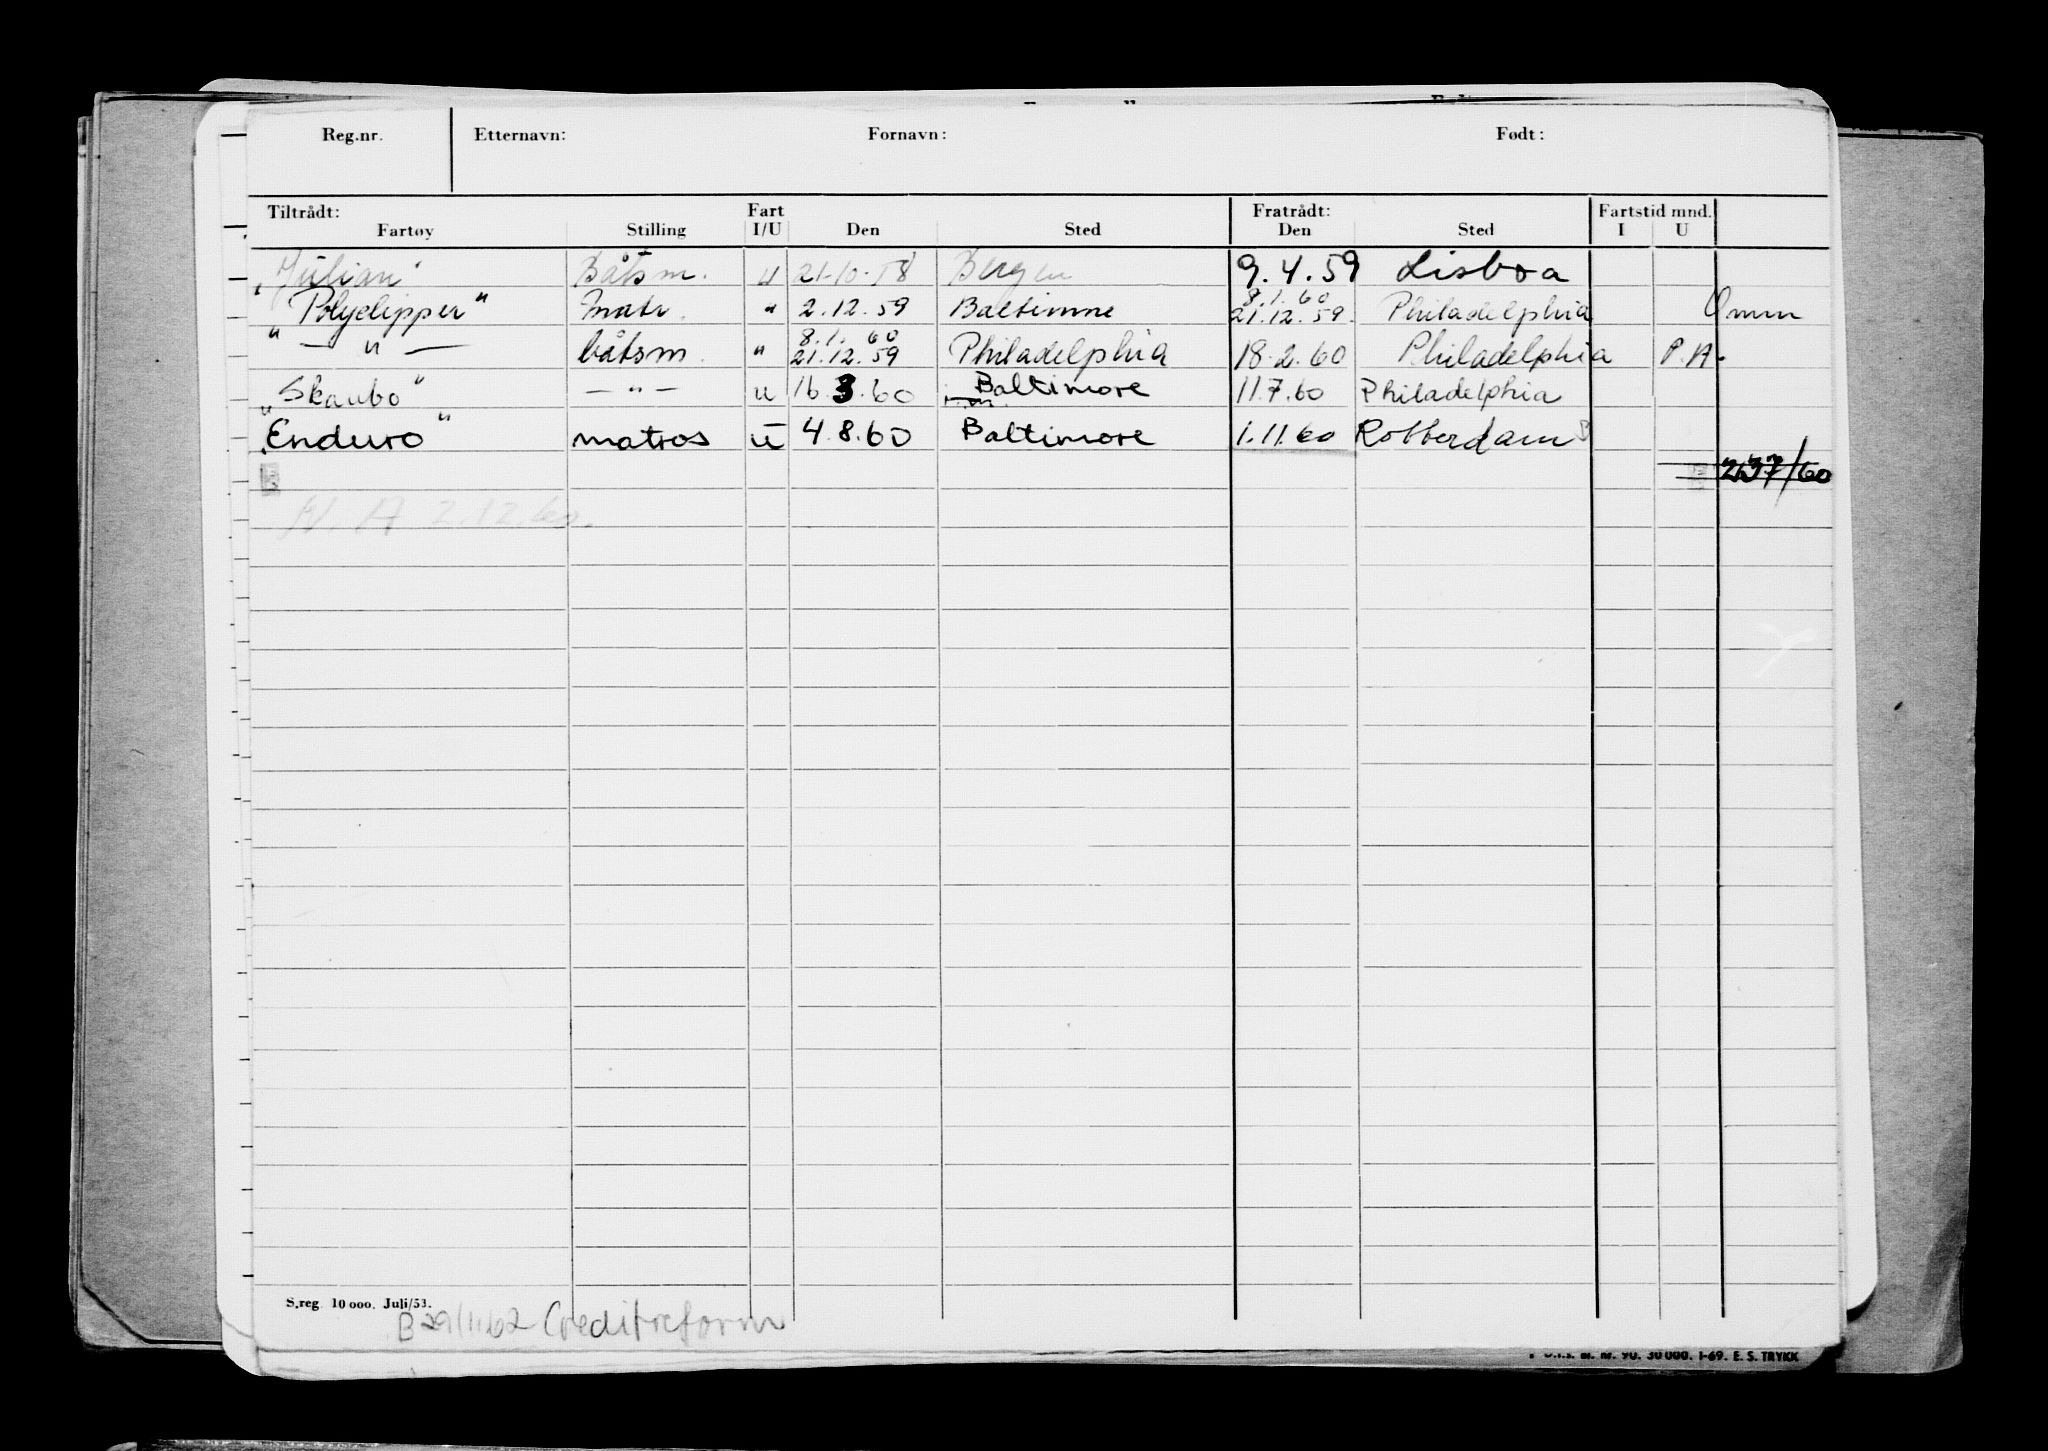 Reg.nr. Etternavn: Fornavn: Født:
Tiltrådt: Fart Fratrådt: Fartstid mnd.
Fartøy Stilling I/U Den Sted Den Sted I U
"Julian" Båtsm. u 21-10-58 Bergen 9.4.59 Lisboa
8.1.60
"Polyclipper" Matr. " 2.12.59 Baltimore 21.12.59. Philadelphia Omm
8.1.60
" — " — båtsm. " 21.12.59 Philadelphia 18.2.60 Philadelphia P.A.
"Skaubo" — " — u 16.3.60 Baltimore 11.7.60 Philadelphia
"Enduro" matros u 4.8.60 Baltimore 1.11.60 Rotterdam
237/60
H. A 2.12.60.
S.reg. 10 000. Juli/53.
B 29/1.62 Creditreform
30 000. 1-69. E. S. TRYKK